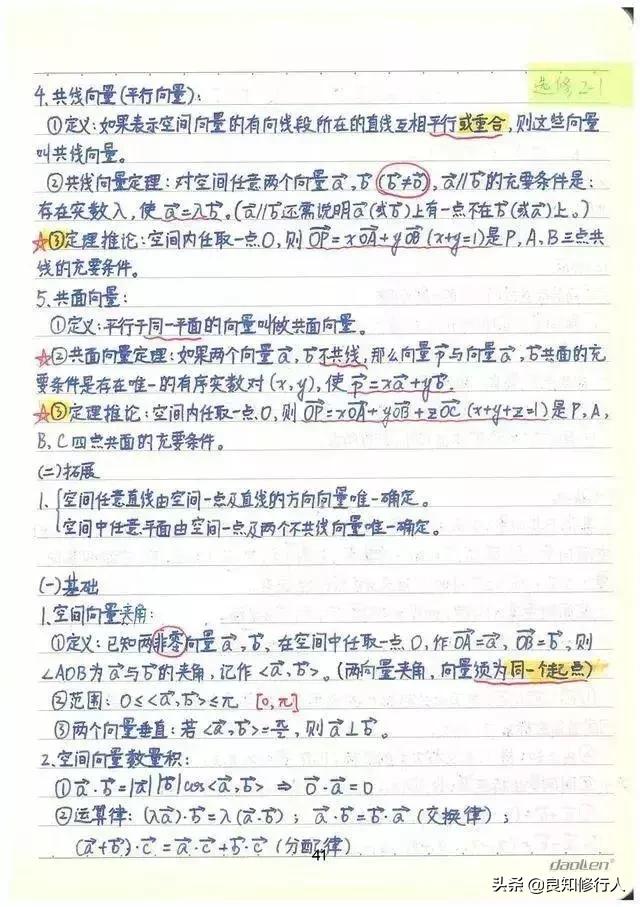 选修2-1
4.共线向量(平行向量):
①定义:如果表示空间向量的有向线段所在的直线互相平行或重合,则这些向量
叫共线向量。
②共线向量定理:对空间任意两个向量a⃗,b⃗(b⃗≠0⃗),a⃗∥b⃗的充要条件是:
存在实数λ,使a⃗=λb⃗。(a⃗∥b⃗还需说明a⃗(或b⃗)上有一点不在b⃗(或a⃗)上。)
☆③定理推论:空间内任取一点O,则OP⃗=xOA⃗+yOB⃗(x+y=1)是P,A,B三点共
线的充要条件。
5.共面向量:
①定义:平行于同一平面的向量叫做共面向量。
☆②共面向量定理:如果两个向量a⃗,b⃗不共线,那么向量p⃗与向量a⃗,b⃗共面的充
要条件是存在唯一的有序实数对(x,y),使p⃗=xa⃗+yb⃗.
☆③定理推论:空间内任取一点O,则OP⃗=xOA⃗+yOB⃗+zOC⃗(x+y+z=1)是P,A,
B,C四点共面的充要条件。
(二)拓展
1.{空间任意直线由空间一点及直线的方向向量唯一确定。
空间中任意平面由空间一点及两个不共线向量唯一确定。
(一)基础
1.空间向量夹角:
①定义:已知两非零向量a⃗,b⃗,在空间中任取一点O,作OA⃗=a⃗,OB⃗=b⃗,则
∠AOB为a⃗与b⃗的夹角,记作<a⃗,b⃗>。(两向量夹角,向量须为同一个起点)
②范围:0≤<a⃗,b⃗>≤π [0,π]
③两个向量垂直:若<a⃗,b⃗>=π/2,则a⃗⊥b⃗。
2.空间向量数量积:
①a⃗·b⃗=|a⃗||b⃗|cos<a⃗,b⃗> ⇒ 0⃗·a⃗=0
②运算律:(λa⃗)·b⃗=λ(a⃗·b⃗);a⃗·b⃗=b⃗·a⃗(交换律);
(a⃗+b⃗)·c⃗=a⃗·c⃗+b⃗·c⃗(分配律)
41
daolen
头条@良知修行人